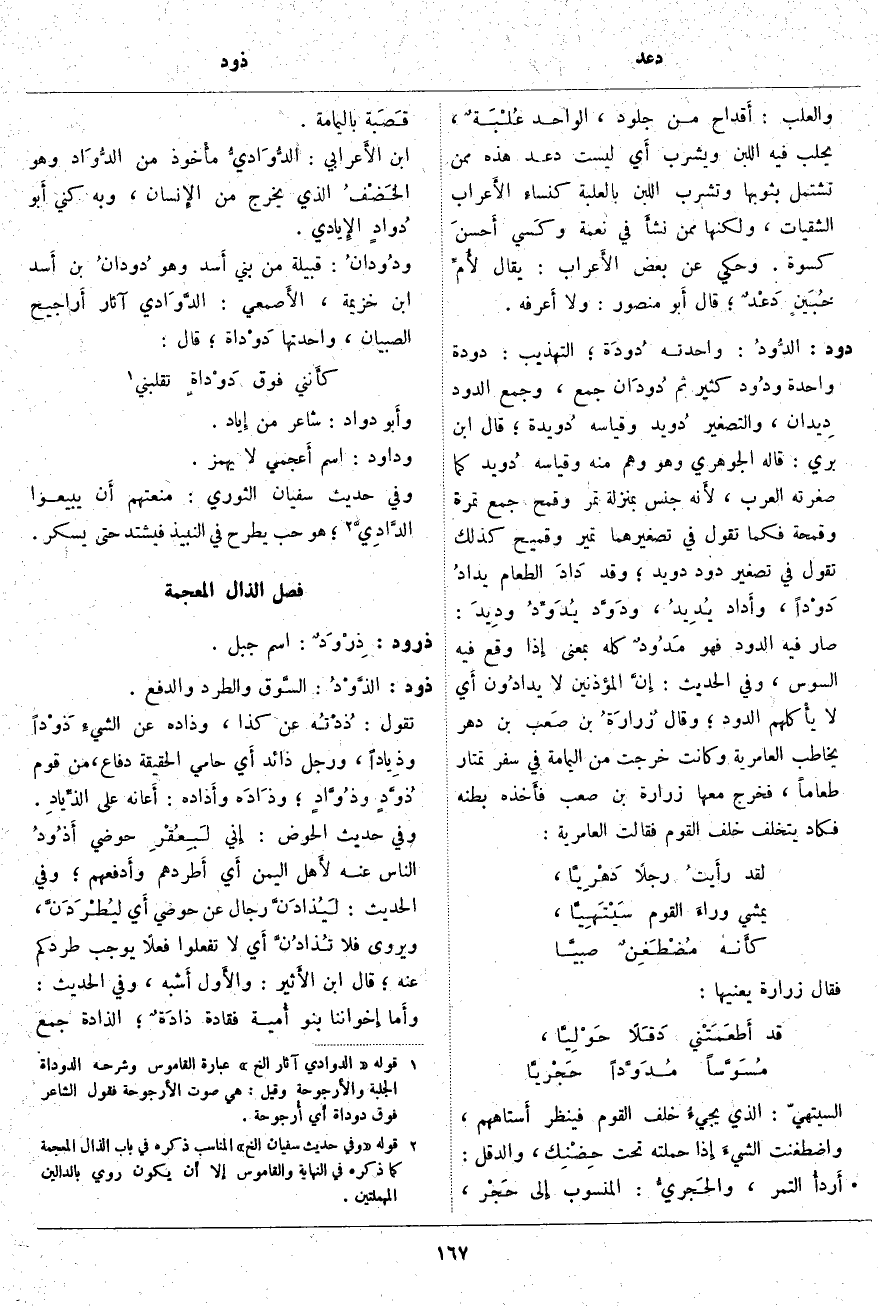 دعد
ذود
والعلب : أقداح من جلود ، الواحد عُلْبَةٌ ،
يحلب فيه اللبن ويشرب أي ليست دعد هذه ممن
تشتمل بثوبها وتشرب اللبن بالعلبة كنساء الأعراب
الشقيات ، ولكنها ممن نشأ في نعمة وكَسي أحسنَ
كسوة . وحكي عن بعض الأعراب : يقال لأُمّ
حُبَينٍ دَعْدٌ ؛ قال أبو منصور : ولا أعرفه .
دود : الدُّودُ : واحدته دُودَة ؛ التهذيب : دودة
واحدة ودُود كثير ثم دُودَان جمع ، وجمع الدود
دِيدان ، والتصغير دُويد وقياسه دُويدة ؛ قال ابن
بري : قاله الجوهري وهو وهم منه وقياسه دُويد كما
صغرته العرب ، لأنه جنس بمنزلة تمر وقمح جمع تمرة
وقمحة فكما تقول في تصغيرهما تمير وقميح كذلك
تقول في تصغير دود دويد ؛ وقد دَادَ الطعام يدادُ
دَوْداً ، وأداد يُدِيدُ ، ودَوَّد يُدَوِّدُ ودِيدَ :
صار فيه الدود فهو مَدُودٌ كله بمعنى إذا وقع فيه
السوس ، وفي الحديث : إنَّ المؤذنين لا يدادُون أي
لا يأكلهم الدود ؛ وقال زُرارَةُ بن صَعب بن دهر
يخاطب العامرية وكانت خرجت من اليمامة في سفر تمتار
طعاماً ، فخرج معها زرارة بن صعب فأخذه بطنه
فكاد يتخلف خلف القوم فقالت العامرية :
لقد رأيتُ رجلًا دَهْرِيّا ،
يمشي وراءَ القوم سَيْتَهِيّا ،
كأنه مُضْطَغِنٌ صبيّا
فقال زرارة يعنيها :
قد أطعَمَتْني دَقَلًا حَوْلِيّا ،
مُسَوَّساً مُدَوَّداً حَجْرِيّا
السيتهيّ : الذي يجيءُ خلف القوم فينظر أستاههم ،
واضطغنت الشيءَ إذا حملته تحت حِضْنِك ، والدقل :
أردأُ التمر ، والحَجريُّ : المنسوب إلى حَجْر ،
قَصَبة باليمامة .
ابن الأعرابي : الدُّوَادِيُّ مأخوذ من الدُّوَاد وهو
الخَضْفُ الذي يخرج من الإنسان ، وبه كني أبو
دُوادٍ الإيادي .
ودُودانُ : قبيلة من بني أسد وهو دُودانُ بن أسد
ابن خزيمة ، الأصمعي : الدَّوَادي آثار أراجيح
الصبيان ، واحدتها دَوْداة ؛ قال :
كأنني فوق دَوْداةٍ تقلبني١
وأبو دواد : شاعر من إياد .
وداود : اسم أعجمي لا يهمز .
وفي حديث سفيان الثوري : منعتهم أن يبيعوا
الدَّاذِيَّ٢ ؛ هو حب يطرح في النبيذ فيشتد حتى يسكر .
فصل الذال المعجمة
ذرود : ذِرْوَدٌ : اسم جبل .
ذود : الذَّوْدُ : السَّوق والطرد والدفع .
تقول : ذُدْتُه عن كذا ، وذاده عن الشيءِ ذَوْداً
وذِياداً ، ورجل ذائد أي حامي الحقيقة دفاع ، من قوم
ذُوَّدٍ وذُوَّادٍ ؛ وذَادَه وأذاده : أعانه على الذِّيادِ .
وفي حديث الحوض : إني لَبِعُقْرِ حوضي أذُودُ
الناس عنه لأهل اليمن أي أطردهم وأدفعهم ؛ وفي
الحديث : لَيُذادَنَّ رجال عن حوضي أي ليُطْرَدَنَّ ،
ويروى فلا تُذادُنَّ أي لا تفعلوا فعلًا يوجب طردكم
عنه ؛ قال ابن الأثير : والأول أشبه ، وفي الحديث :
وأما إخواننا بنو أُمية فقادة ذادَةٌ ؛ الذادة جمع
١ قوله « الدوادي آثار الخ » عبارة القاموس وشرحه الدوداة
الجلبة والأرجوحة وقيل : هي صوت الأرجوحة فقول الشاعر
فوق دوداة أي أرجوحة .
٢ قوله « وفي حديث سفيان الخ » المناسب ذكره في باب الذال المعجمة
كما ذكره في النهاية والقاموس إلا أن يكون روي بالدالين
المهملتين .
١٦٧